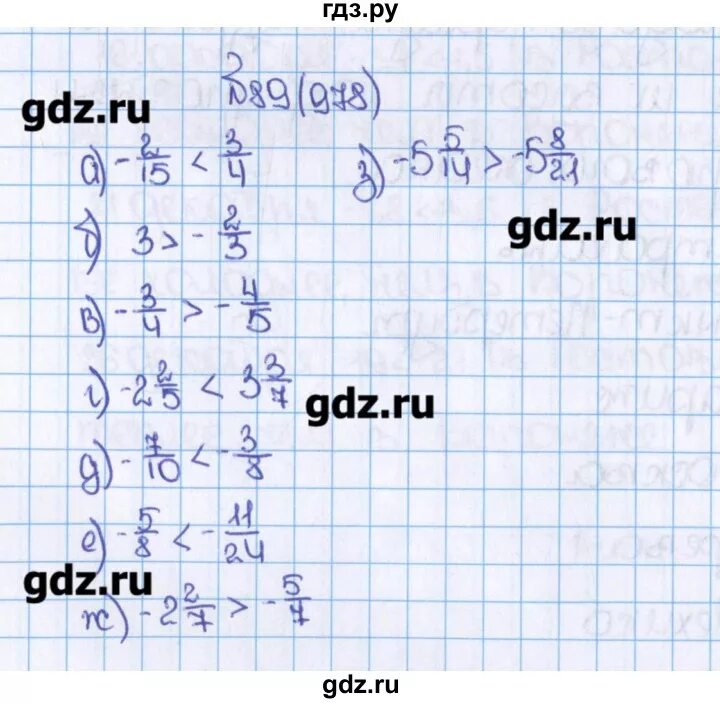 гдз.ру
№89(978)
gdz.ru
а) -2/15 < 3/4
з) -5 5/14 > -5 8/21
gdz.ru
б) 3 > -2/3
в) -3/4 > -4/5
г) -2 2/5 < 3 3/7
gdz.ru
д) -7/10 < -3/8
е) -5/8 < -11/24
gdz.ru
ж) -2 2/7 > -5/7
gdz.ru